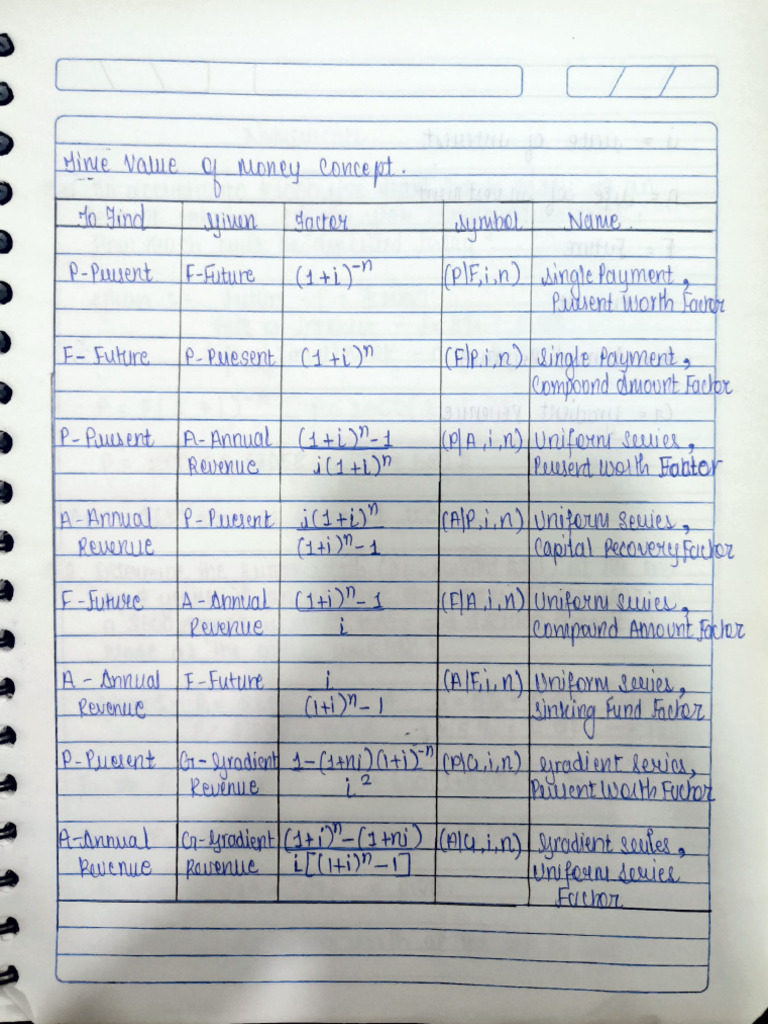 Time Value of Money Concept.
To Find Given Factor Symbol Name.
P-Present F-Future (1+i)⁻ⁿ (P|F,i,n) Single Payment,
Present Worth Factor
F-Future P-Present (1+i)ⁿ (F|P,i,n) Single Payment,
Compound Amount Factor
P-Present A-Annual (1+i)ⁿ-1 (P|A,i,n) Uniform Series,
Revenue i(1+i)ⁿ Present Worth Factor
A-Annual P-Present i(1+i)ⁿ (A|P,i,n) Uniform Series,
Revenue (1+i)ⁿ-1 Capital Recovery Factor
F-Future A-Annual (1+i)ⁿ-1 (F|A,i,n) Uniform Series,
Revenue i Compound Amount Factor
A-Annual F-Future i (A|F,i,n) Uniform Series,
Revenue (1+i)ⁿ-1 Sinking Fund Factor
P-Present G-Gradient 1-(1+ni)(1+i)⁻ⁿ (P|G,i,n) Gradient Series,
Revenue i² Present Worth Factor
A-Annual G-Gradient (1+i)ⁿ-(1+ni) (A|G,i,n) Gradient Series,
Revenue Revenue i[(1+i)ⁿ-1] Uniform Series
Factor